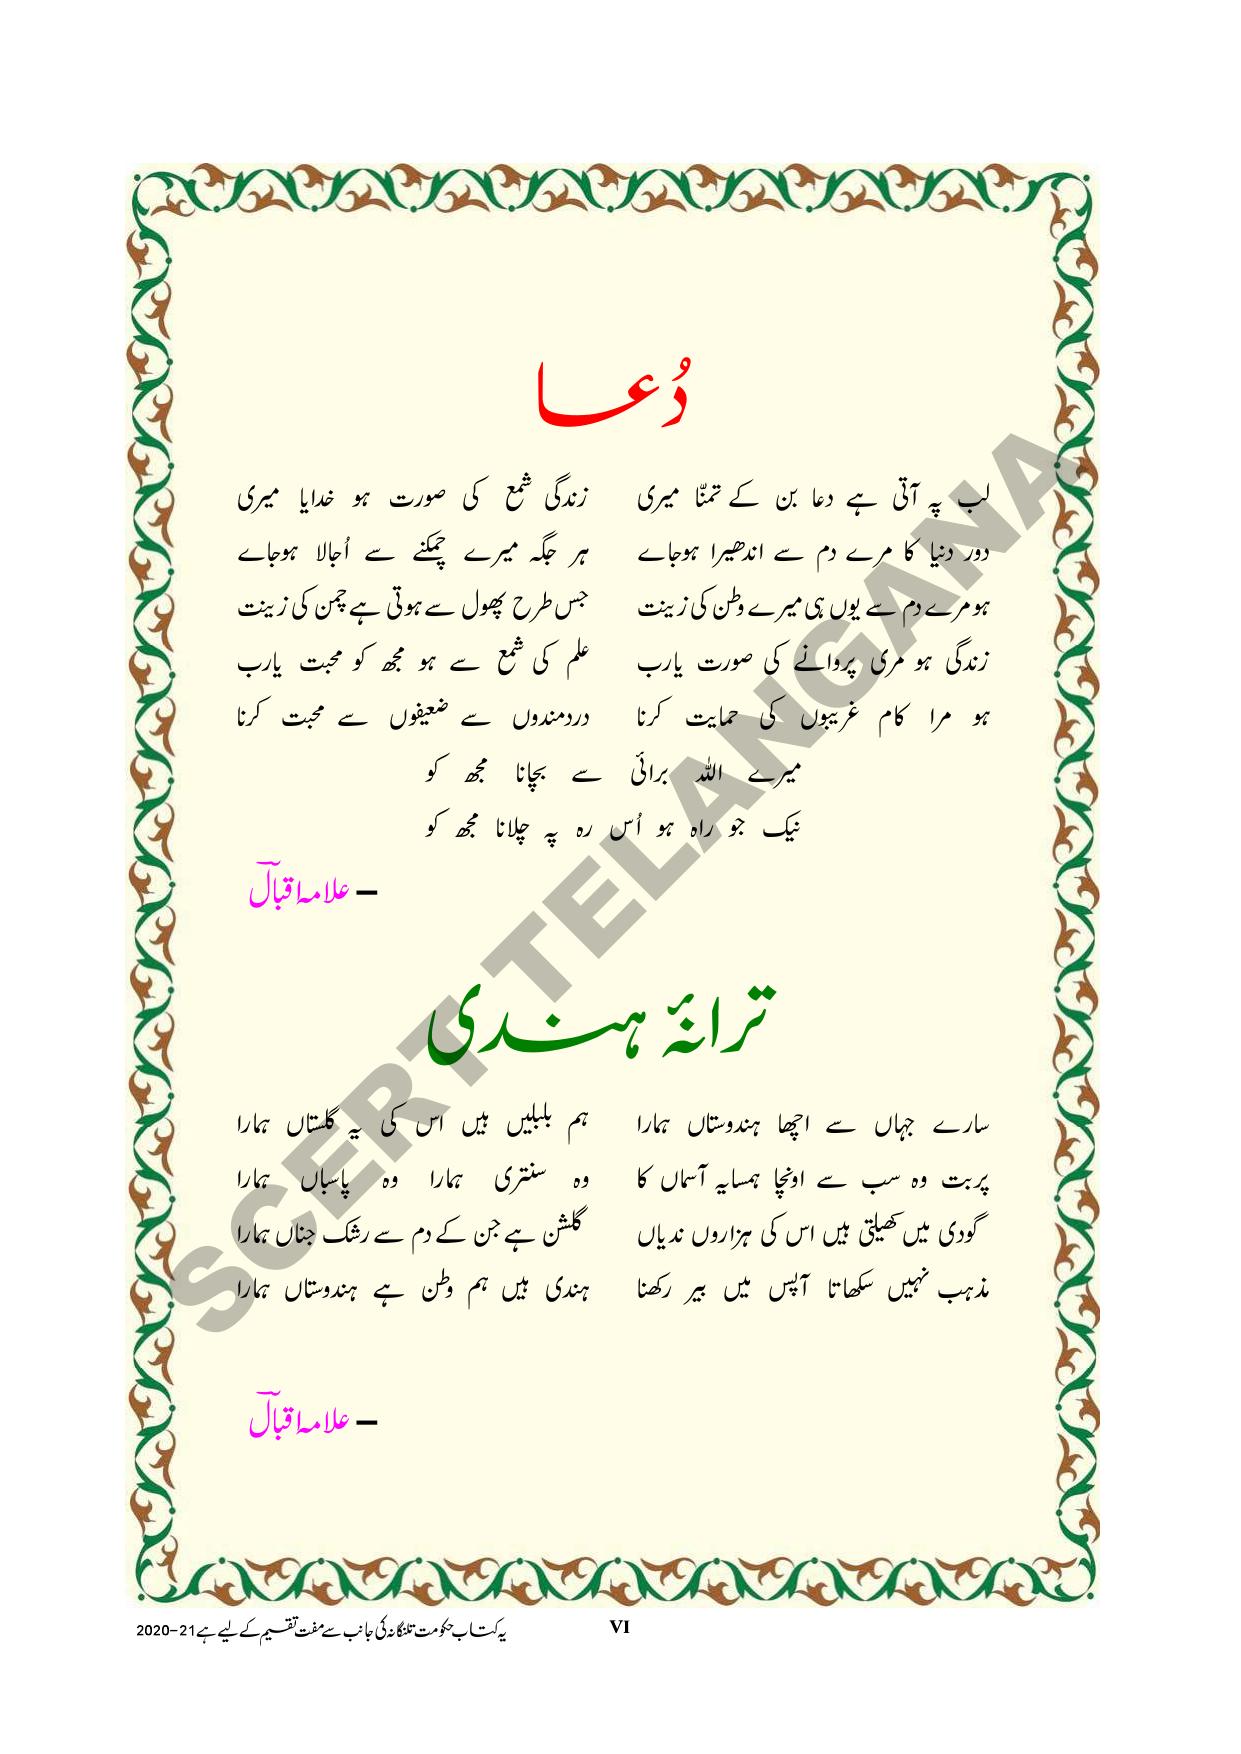 دُعا
لب پہ آتی ہے دعا بن کے تمنّا میری زندگی شمع کی صورت ہو خدایا میری
دور دنیا کا مرے دم سے اندھیرا ہوجاے ہر جگہ میرے چمکنے سے اُجالا ہوجاے
ہو مرے دم سے یوں ہی میرے وطن کی زینت جس طرح پھول سے ہوتی ہے چمن کی زینت
زندگی ہو مری پروانے کی صورت یارب علم کی شمع سے ہو مجھ کو محبت یارب
ہو مرا کام غریبوں کی حمایت کرنا دردمندوں سے ضعیفوں سے محبت کرنا
میرے اللہ برائی سے بچانا مجھ کو
نیک جو راہ ہو اُس رہ پہ چلانا مجھ کو
– علامہ اقبالؔ
ترانۂ ہندی
سارے جہاں سے اچھا ہندوستاں ہمارا ہم بلبلیں ہیں اس کی یہ گلستاں ہمارا
پربت وہ سب سے اونچا ہمسایہ آسماں کا وہ سنتری ہمارا وہ پاسباں ہمارا
گودی میں کھیلتی ہیں اس کی ہزاروں ندیاں گلشن ہے جن کے دم سے رشک جناں ہمارا
مذہب نہیں سکھاتا آپس میں بیر رکھنا ہندی ہیں ہم وطن ہے ہندوستاں ہمارا
– علامہ اقبالؔ
SCERT TELANGANA
یہ کتاب حکومت تلنگانہ کی جانب سے مفت تقسیم کے لیے ہے 2020-21
VI